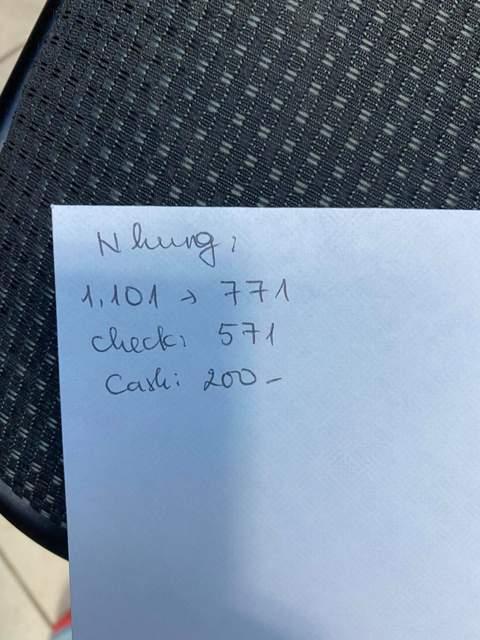 Nhung:
1,101 → 771
check: 571
Cash: 200-